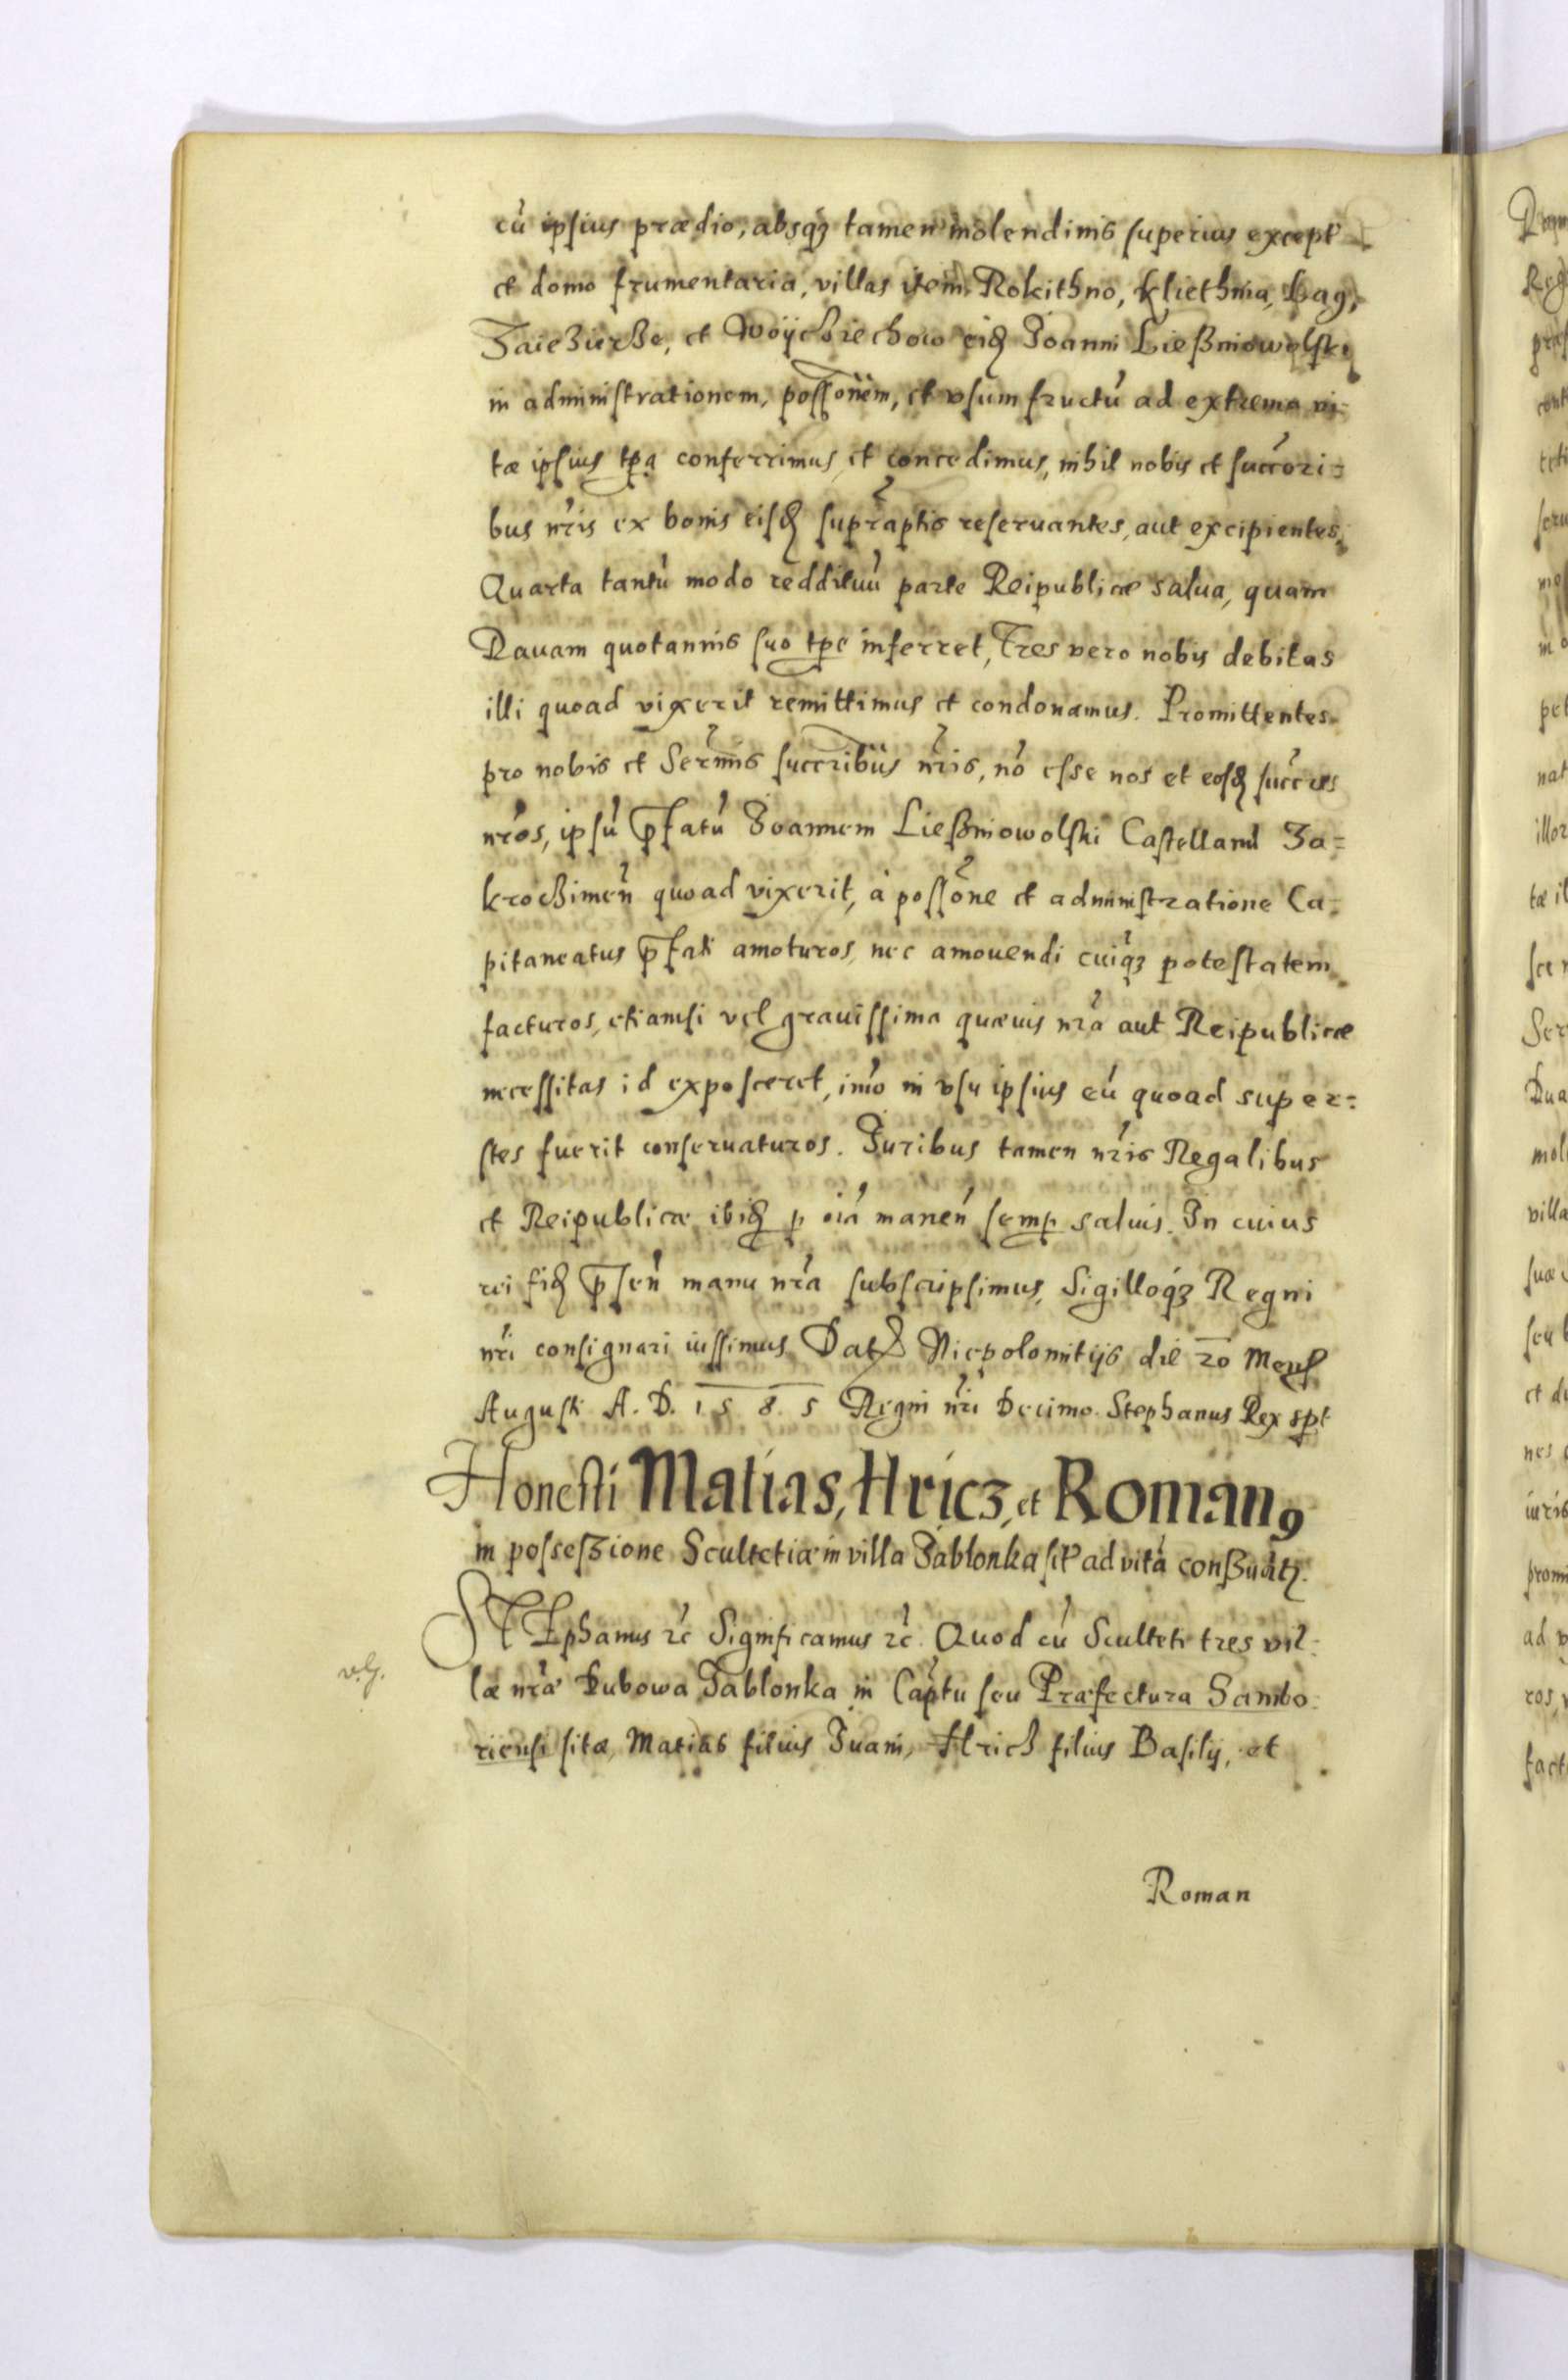 cū ipsius prædio, absqȝ tamen molendinis superius except
et domo frumentaria, villas item Rokithno, Kliethnia, Bag,
et Woÿchiechow eidꝫ Joanni Ließniowolski
in administrationem, possōnem, et vsumfructū ad extrema vi=
tæ ipsius tpa conferrimus, et concedimus, nihil nobis et succori=
bus nr̄is ex bonis eisdꝫ supraptis reseruantes, aut excipientes,
Quarta tantū modo reddituū parte Reipublicæ salua, quam
Ravam quotannis suo tpe inferret, Tres vero nobis debitas
illi quoad vixerit remittimus et condonamus. Promittentes
pro nobis et Serm̄is succribus nr̄is, nō esse nos et eosdꝫ succres
nr̄os, ipsū p̄fatū Joannem Ließniowolski Castellanū Za=
krochimeñ quoad vixerit, à possōne et administratione Ca=
pitaneatus p̄fati amoturos, nec amouendi cuiqȝ potestatem
facturos, etiamsi vel grauissima quæuis nr̄a aut Reipublicæ
necessitas id exposceret, imō in vsu ipsius eū quoad super=
stes fuerit conseruaturos. Juribus tamen nr̄is Regalibus
et Reipublicæ ibidꝫ p oiā maneñ semp saluis. In cuius
rei fidꝫ p̄señ manu nr̄a subscripsimus, Sigilloqȝ Regni
nr̄i consignari iussimus. Datꝫ Niepolomitijs die 20 Mens
Augusti A. D. 1585 Regni nr̄i Decimo. Stephanus Rex spt
Honesti Matias, Hricz, et Romanꝰ
in possessione Scultetiæ in villa Jablonka sit ad vitā conßuātꝫ.
STEphanus ꝛc̄ Significamus ꝛc̄. Quod cū Sculteti tres vil=
læ nr̄æ Dubowa Jablonka in Captu seu Præfectura Sambo
riensi sitæ, Matias filius Juani, Hrich filius Basilij, et
Roman